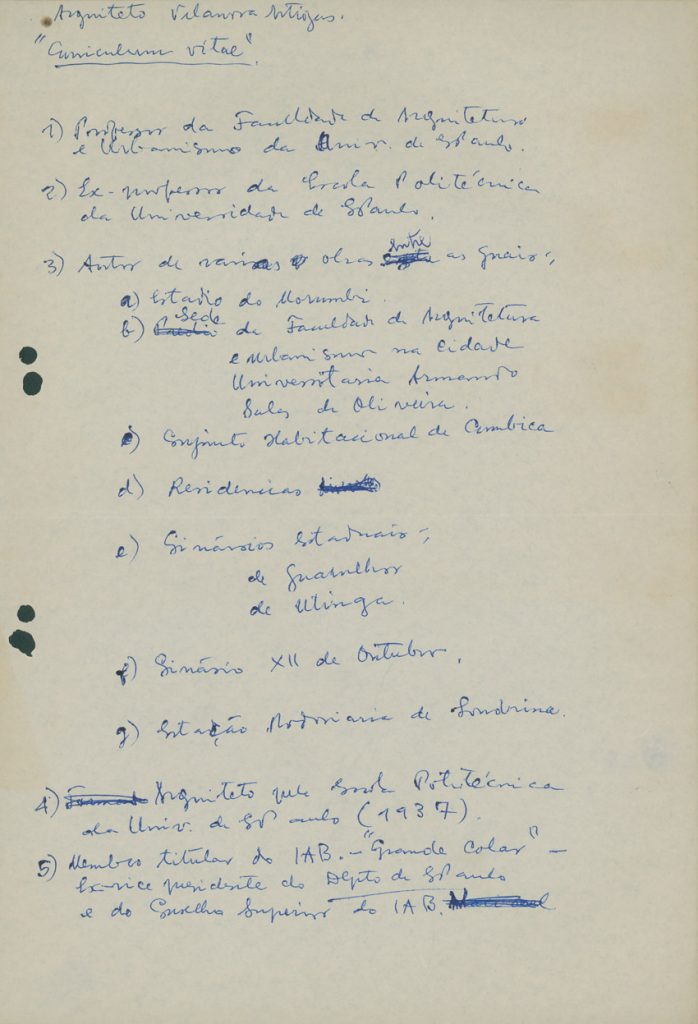 Arquiteto Vilanova Artigas.
"Curriculum vitae".
1) Professor da Faculdade de Arquitetura
e Urbanismo da Univ. de S Paulo.
2) Ex-professor da Escola Politécnica
da Universidade de S Paulo.
3) Autor de varias obras entre as quais:,
a) Estadio do Morumbi.
b) Sede da Faculdade de Arquitetura
e Urbanismo na Cidade
Universitaria Armando
Sales de Oliveira.
c) Conjunto Habitacional de Cumbica
d) Residencias
e) Ginásios Estaduais:,
de Guarulhos
de Utinga.
f) Ginásio XII de Outubro.
g) Estação Rodoviaria de Londrina.
4) Arquiteto pela Escola Politécnica
da Univ. de S Paulo (1937).
5) Membro titular do IAB. - "Grande Colar" -
Ex-vice presidente do Depto de S Paulo
e do Conselho Superior do IAB.